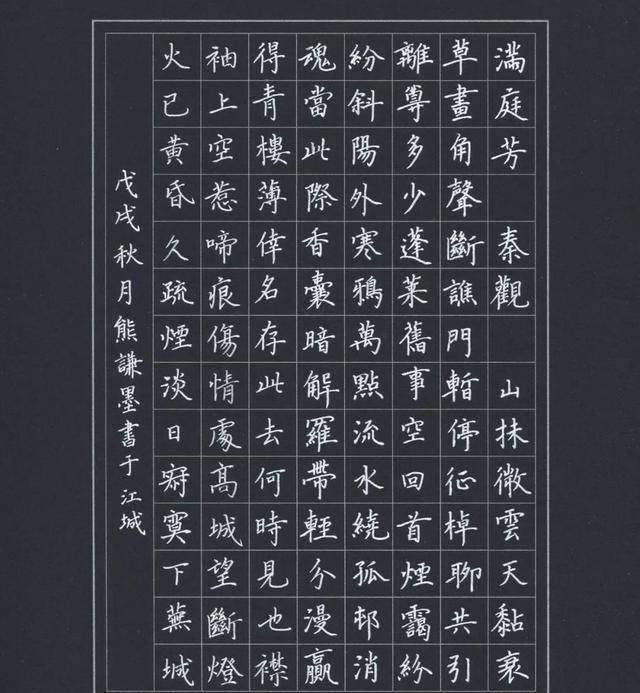 滿庭芳 秦觀 山抹微雲天黏衰
草畫角聲斷譙門暫停征棹聊共引
離尊多少蓬萊舊事空回首煙靄紛
紛斜陽外寒鴉萬點流水繞孤邨消
魂當此際香囊暗解羅帶輕分漫贏
得青樓薄倖名存此去何時見也襟
袖上空惹啼痕傷情處高城望斷燈
火已黃昏久疏煙淡日寂寞下蕪城
戊戌秋月熊謙墨書于江城